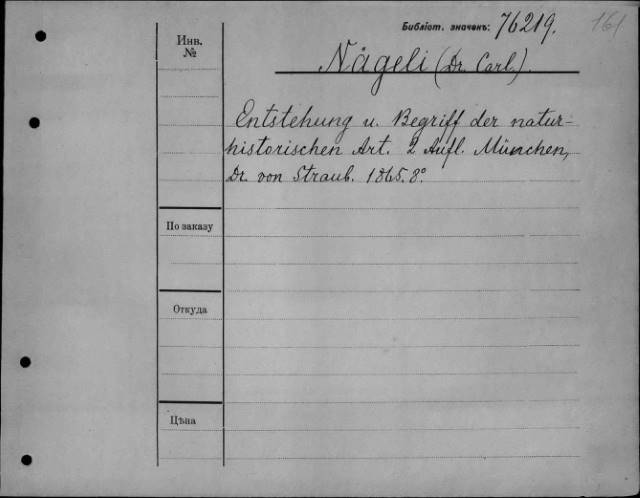 Библіот. значекъ: 76219. 161
Инв. №
Nägeli (Dr. Carl.).
Entstehung u. Begriff der natur-
historischen Art. 2 Aufl. München,
Dr. von Straub. 1865. 8°.
По заказу
Откуда
Цѣна